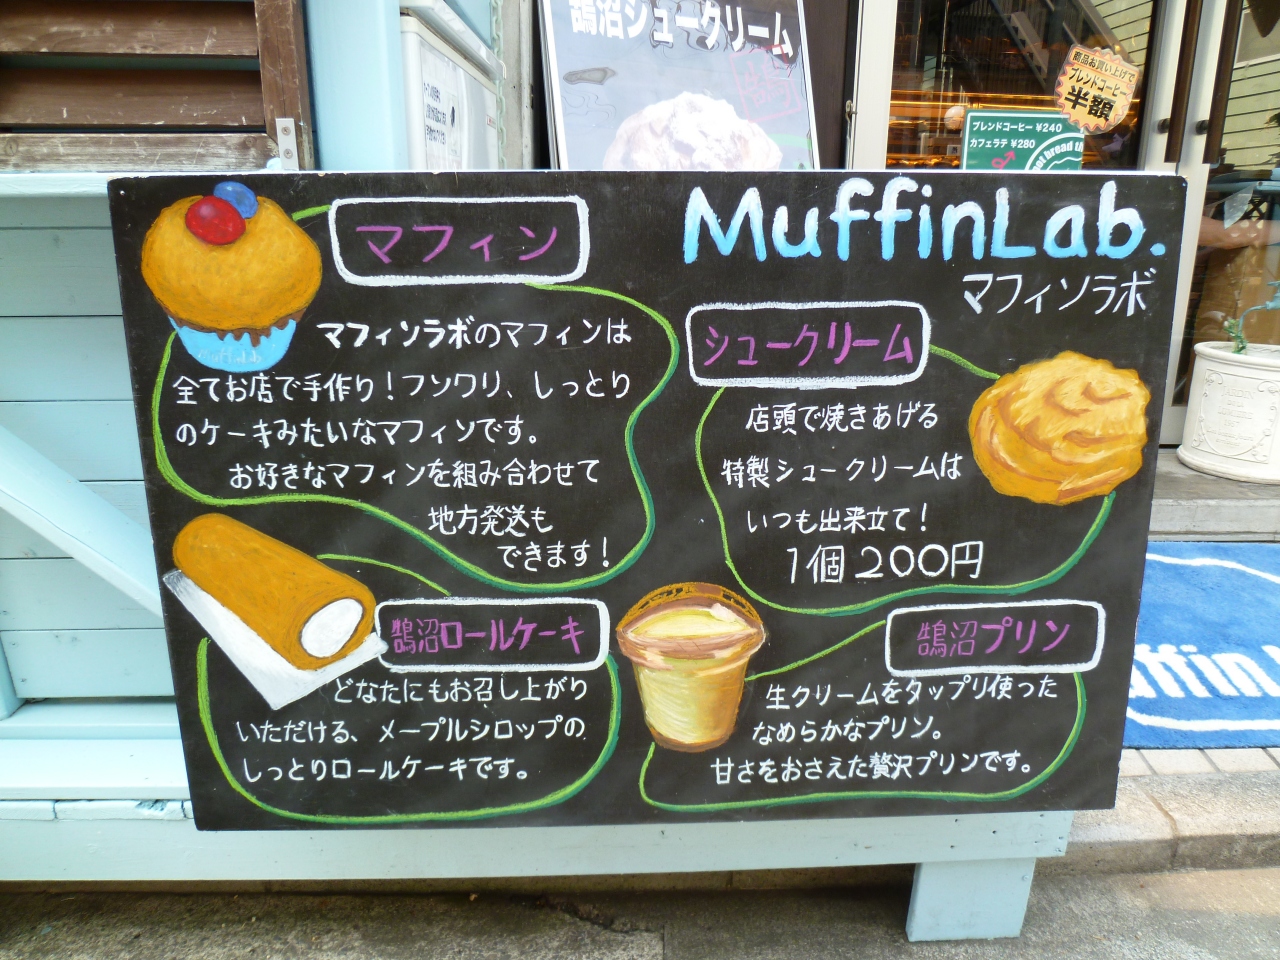 鵠沼シュークリーム
商品お買い上げで
ブレンドコーヒー
半額
ブレンドコーヒー ¥240
カフェラテ ¥280
MuffinLab.
マフィンラボ
マフィン
マフィンラボのマフィンは
全てお店で手作り！フンワリ、しっとり
のケーキみたいなマフィンです。
お好きなマフィンを組み合わせて
地方発送も
できます！
MuffinLab
シュークリーム
店頭で焼きあげる
特製シュークリームは
いつも出来立て！
1個200円
鵠沼ロールケーキ
どなたにもお召し上がり
いただける、メープルシロップの
しっとりロールケーキです。
鵠沼プリン
生クリームをタップリ使った
なめらかなプリン。
甘さをおさえた贅沢プリンです。
uffin